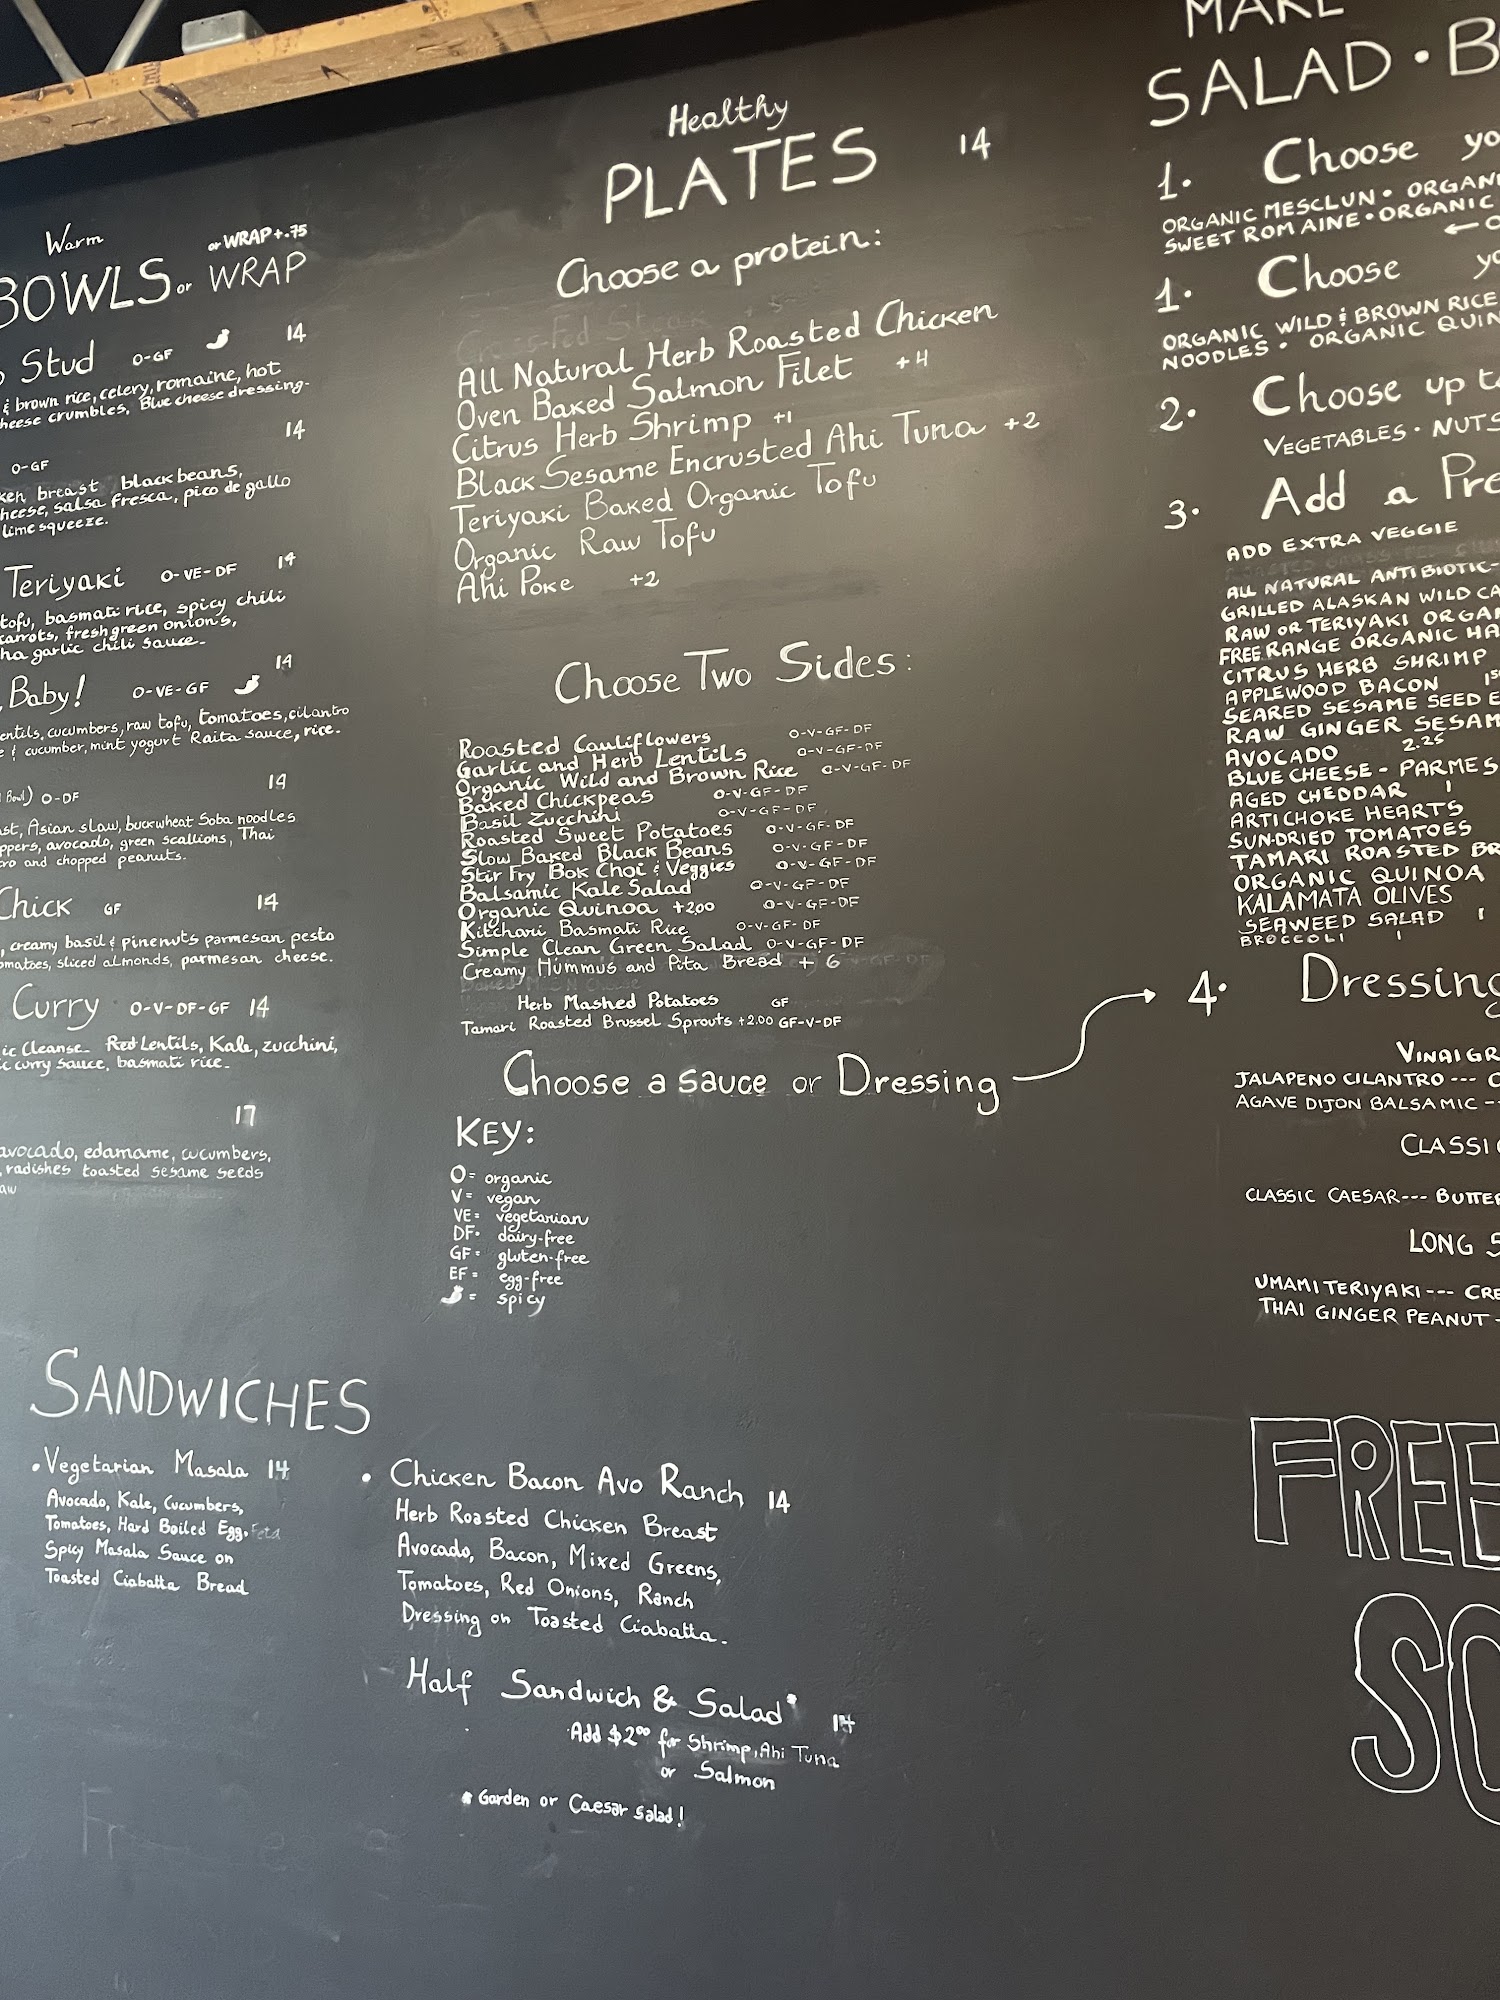 Warm
or WRAP +.75
BOWLS or WRAP
Stud O-GF 14
& brown rice, celery, romaine, hot
cheese crumbles. Blue cheese dressing.
14
O-GF
breast black beans,
cheese, salsa fresca, pico de gallo
lime squeeze.
Teriyaki O-VE-DF 14
tofu, basmati rice, spicy chili
carrots, fresh green onions,
garlic chili sauce.
Baby! O-VE-GF 14
cucumbers, raw tofu, tomatoes, cilantro
& cucumber, mint yogurt Raita sauce, rice.
14
Bowl) O-DF
Asian slaw, buckwheat Soba noodles
avocado, green scallions, Thai
and chopped peanuts.
Chick GF 14
, creamy basil & pinenuts parmesan pesto
sliced almonds, parmesan cheese.
Curry O-V-DF-GF 14
Cleanse. Red Lentils, Kale, zucchini,
curry sauce, basmati rice.
17
avocado, edamame, cucumbers,
, radishes toasted sesame seeds
Healthy
PLATES 14
Choose a protein:
All Natural Herb Roasted Chicken
Oven Baked Salmon Filet +4
Citrus Herb Shrimp +1
Black Sesame Encrusted Ahi Tuna +2
Teriyaki Baked Organic Tofu
Organic Raw Tofu
Ahi Poke +2
Choose Two Sides:
Roasted Cauliflowers O-V-GF-DF
Garlic and Herb Lentils O-V-GF-DF
Organic Wild and Brown Rice O-V-GF-DF
Baked Chickpeas O-V-GF-DF
Basil Zucchini O-V-GF-DF
Roasted Sweet Potatoes O-V-GF-DF
Slow Baked Black Beans O-V-GF-DF
Stir Fry Bok Choi & Veggies O-V-GF-DF
Balsamic Kale Salad O-V-GF-DF
Organic Quinoa +2.00 O-V-GF-DF
Kitchari Basmati Rice O-V-GF-DF
Simple Clean Green Salad O-V-GF-DF
Creamy Hummus and Pita Bread + 6
Herb Mashed Potatoes GF
Tamari Roasted Brussel Sprouts +2.00 GF-V-DF
Choose a sauce or Dressing
KEY:
O= organic
V= vegan
VE= vegetarian
DF= dairy-free
GF= gluten-free
EF= egg-free
= spicy
SANDWICHES
•Vegetarian Masala 14
Avocado, Kale, Cucumbers,
Tomatoes, Hard Boiled Egg, Feta
Spicy Masala Sauce on
Toasted Ciabatta Bread
• Chicken Bacon Avo Ranch 14
Herb Roasted Chicken Breast
Avocado, Bacon, Mixed Greens,
Tomatoes, Red Onions, Ranch
Dressing on Toasted Ciabatta.
Half Sandwich & Salad* 14
Add $2⁰⁰ for Shrimp, Ahi Tuna
or Salmon
* Garden or Caesar salad!
MAKE
SALAD • B
1. Choose yo
ORGANIC MESCLUN • ORGANI
SWEET ROMAINE • ORGANIC
1. Choose yo
ORGANIC WILD & BROWN RICE
NOODLES • ORGANIC QUIN
2. Choose up to
VEGETABLES • NUTS
3. Add a Pre
ADD EXTRA VEGGIE
ALL NATURAL ANTIBIOTIC-
GRILLED ALASKAN WILD CA
RAW OR TERIYAKI ORGA
FREE RANGE ORGANIC HA
CITRUS HERB SHRIMP
APPLEWOOD BACON
SEARED SESAME SEED E
RAW GINGER SESAM
AVOCADO 2.25
BLUE CHEESE - PARMES
AGED CHEDDAR 1
ARTICHOKE HEARTS
SUNDRIED TOMATOES
TAMARI ROASTED BR
ORGANIC QUINOA
KALAMATA OLIVES
SEAWEED SALAD 1
BROCCOLI 1
4. Dressing
VINAIGR
JALAPENO CILANTRO --- C
AGAVE DIJON BALSAMIC --
CLASSIC
CLASSIC CAESAR--- BUTTE
LONG S
UMAMI TERIYAKI--- CRE
THAI GINGER PEANUT -
FREE
SO